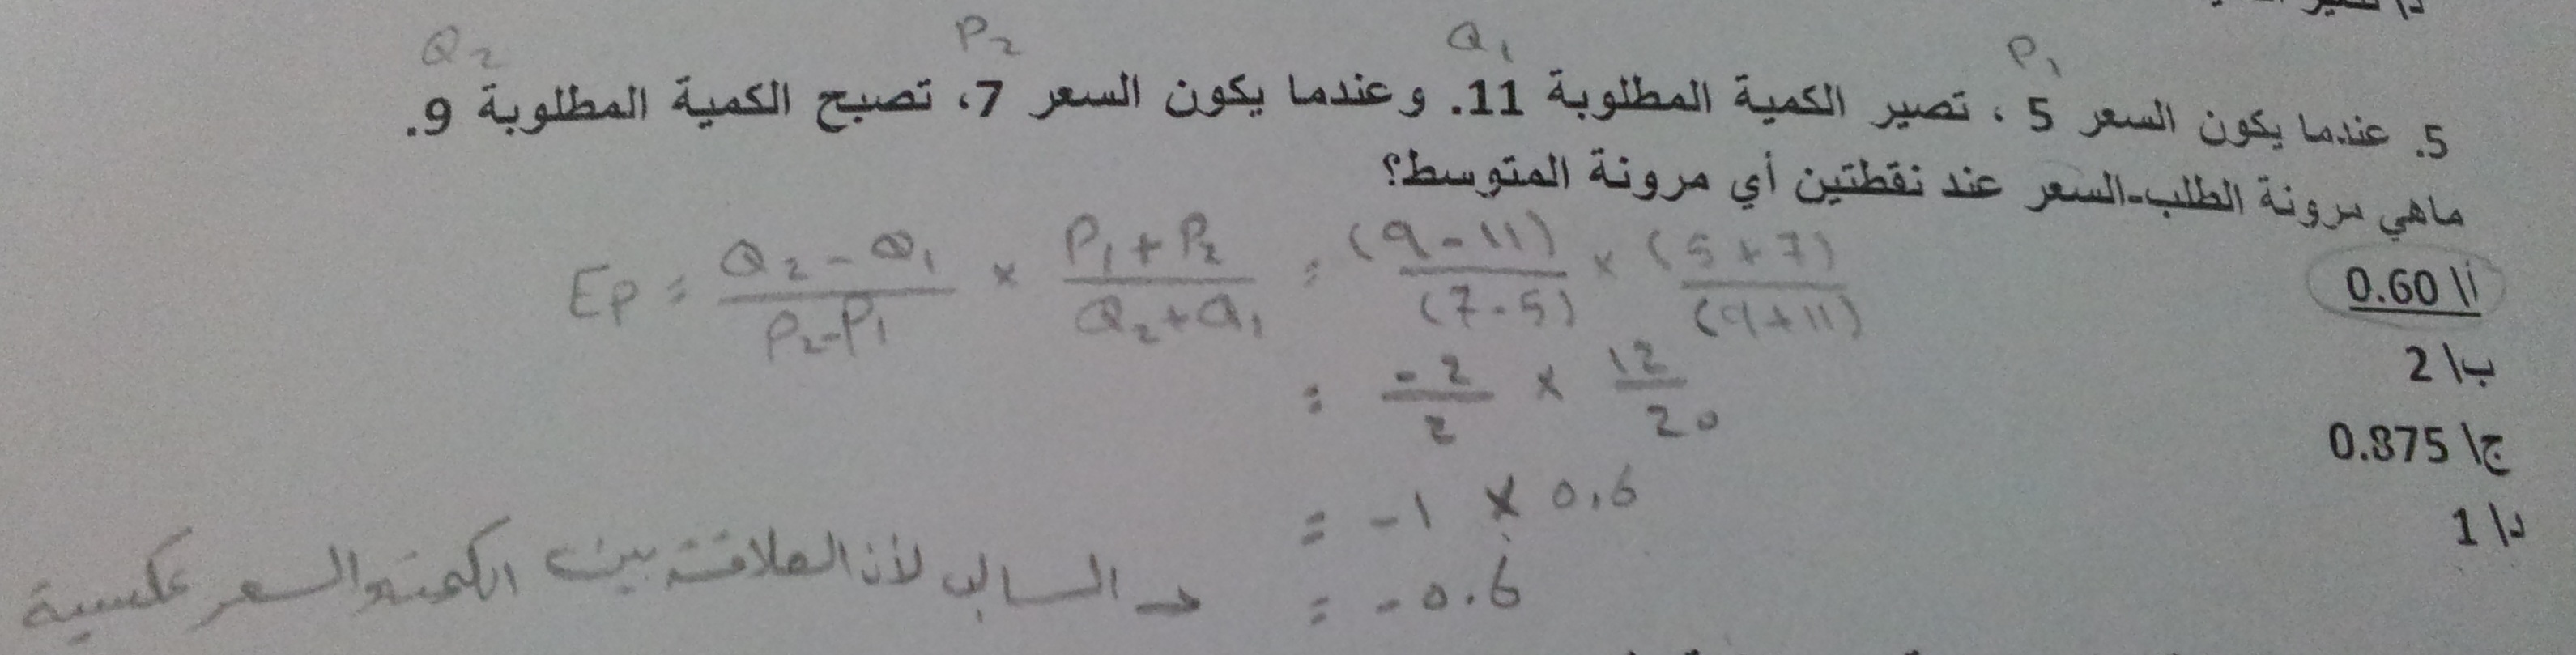 P₁ Q₁ P₂ Q₂
5. عندما يكون السعر 5 ، تصير الكمية المطلوبة 11. وعندما يكون السعر 7، تصبح الكمية المطلوبة 9.
ماهي مرونة الطلب-السعر عند نقطتين أي مرونة المتوسط؟
أ\ 0.60
ب\ 2
ج\ 0.875
د\ 1
Ep = (Q₂ - Q₁)/(P₂ - P₁) × (P₁ + P₂)/(Q₂ + Q₁) = (9 - 11)/(7 - 5) × (5 + 7)/(9 + 11)
= -2/2 × 12/20
= -1 × 0.6
= -0.6 → السالب لأن العلاقة بين الكمية والسعر عكسية